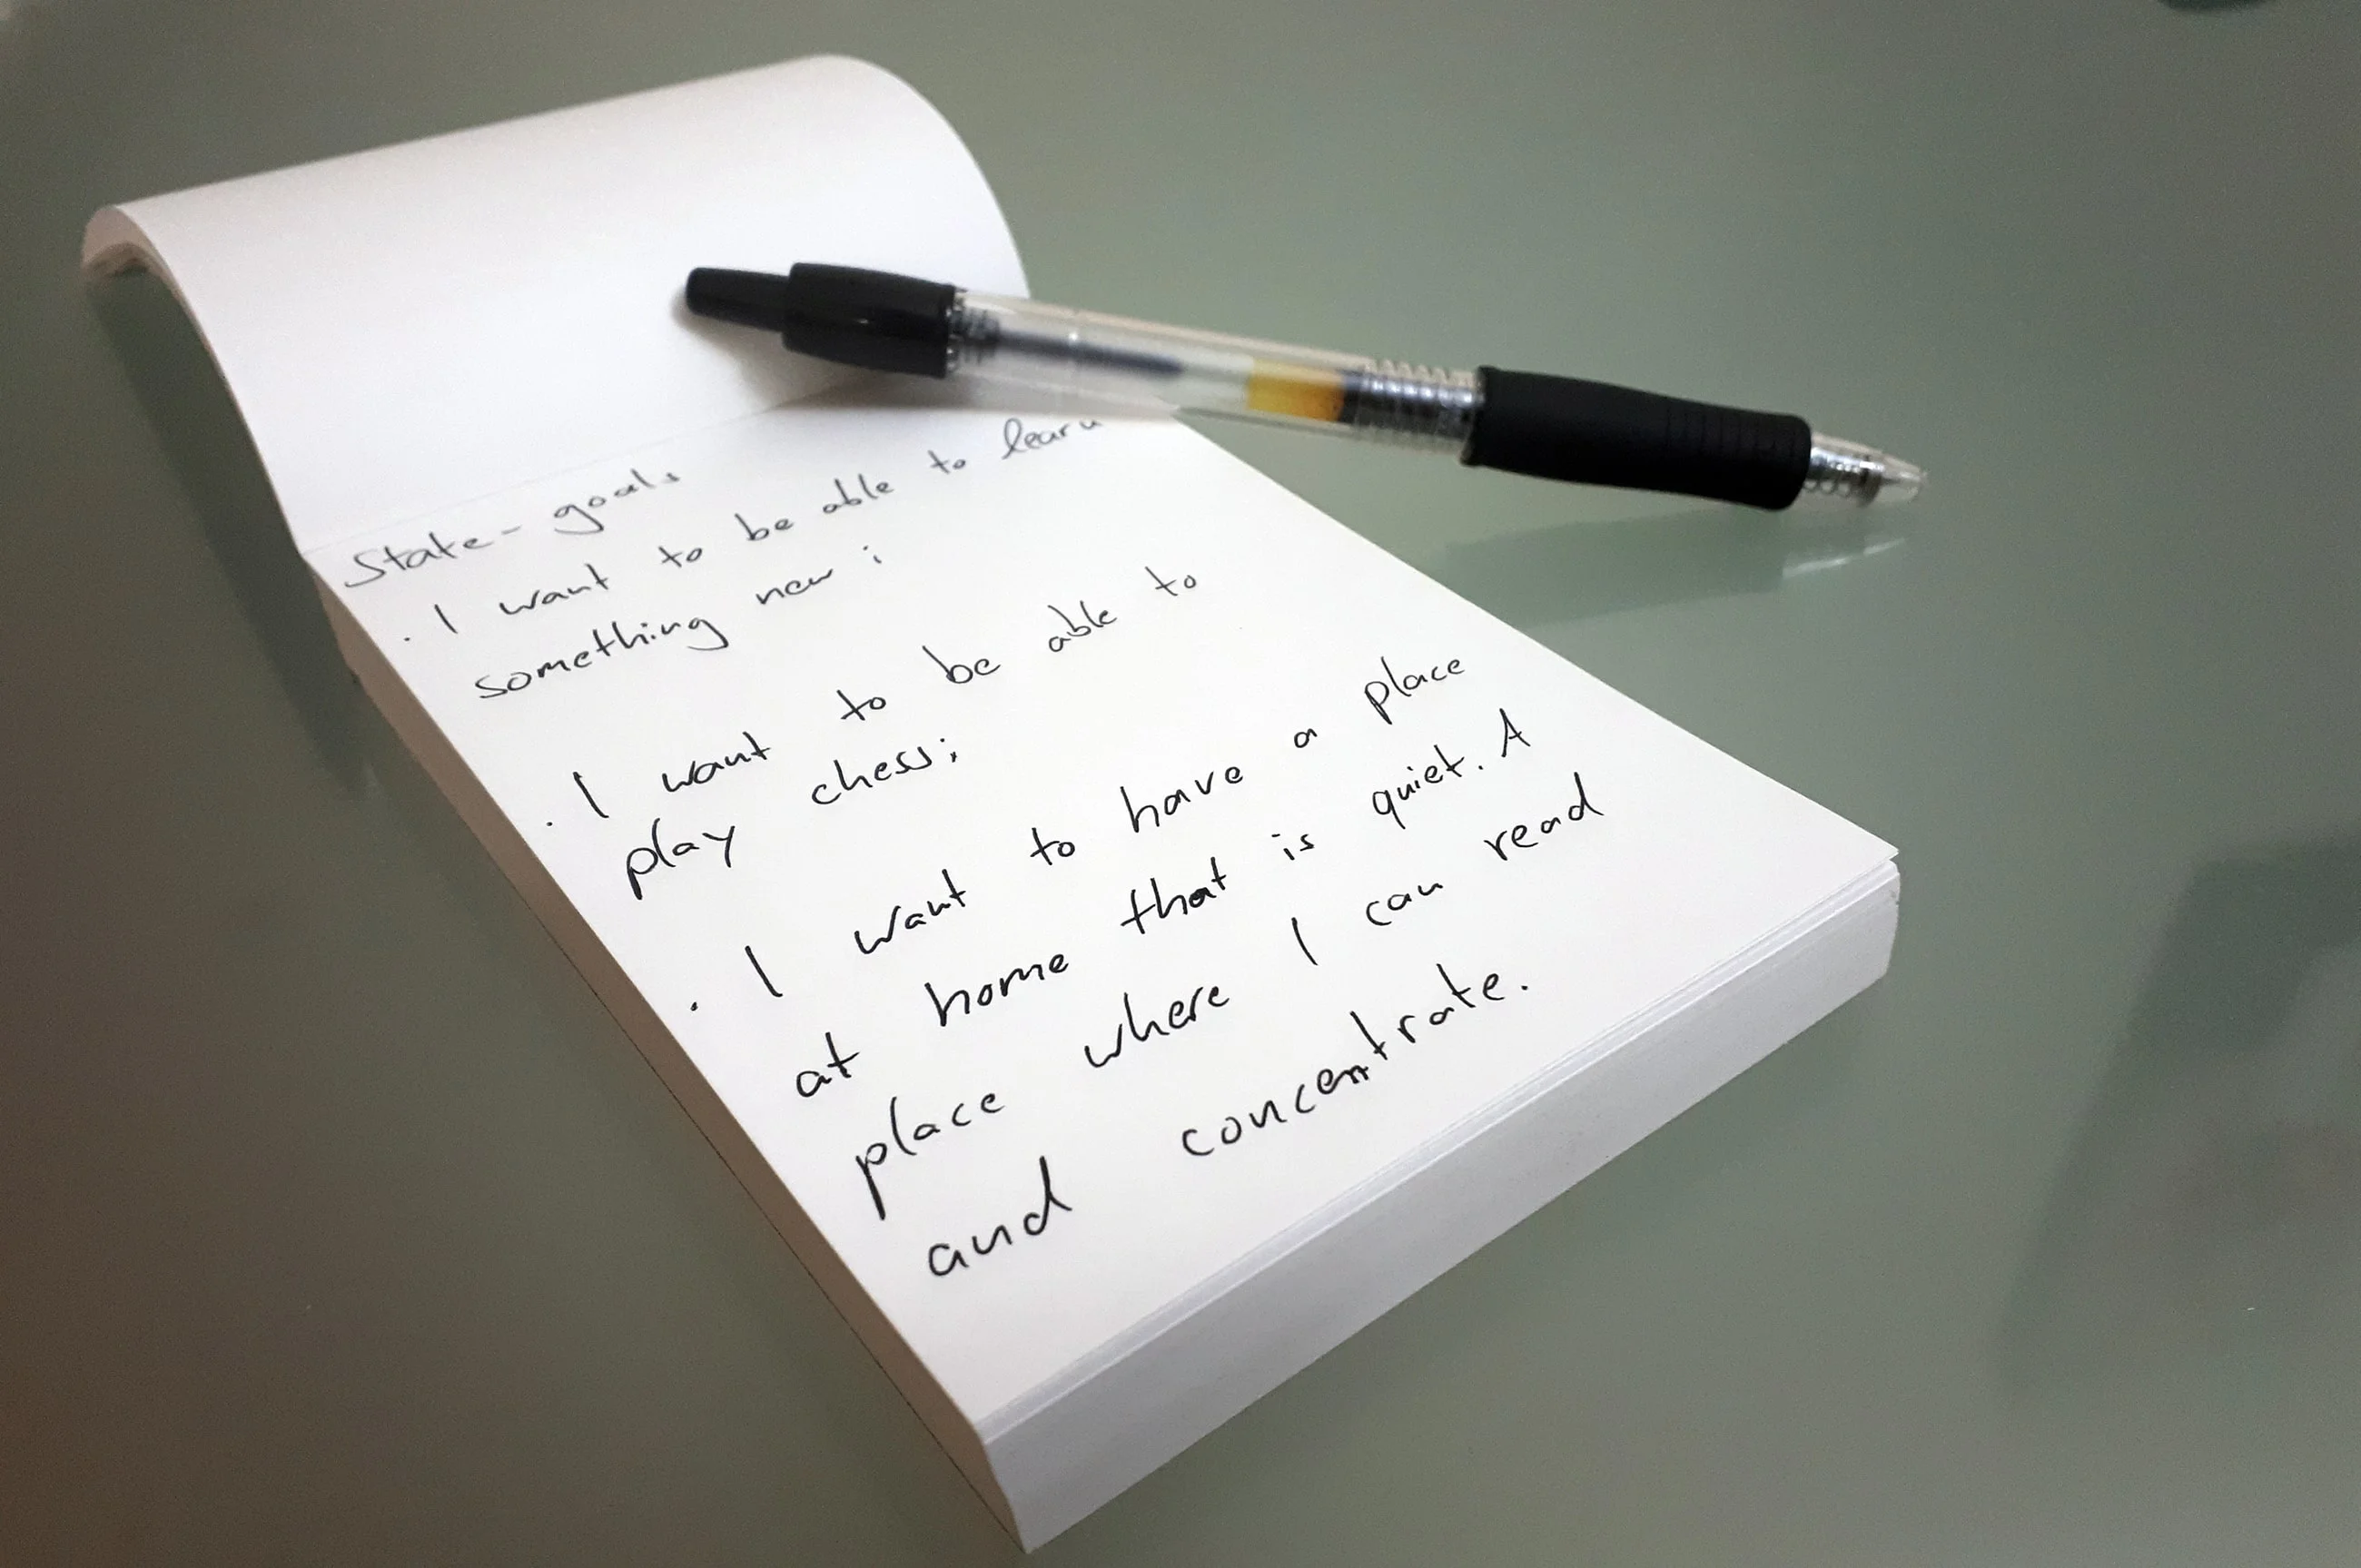 State-goals
. I want to be able to learn
something new ;
. I want to be able to
play chess;
. I want to have a place
at home that is quiet. A
place where I can read
and concentrate.